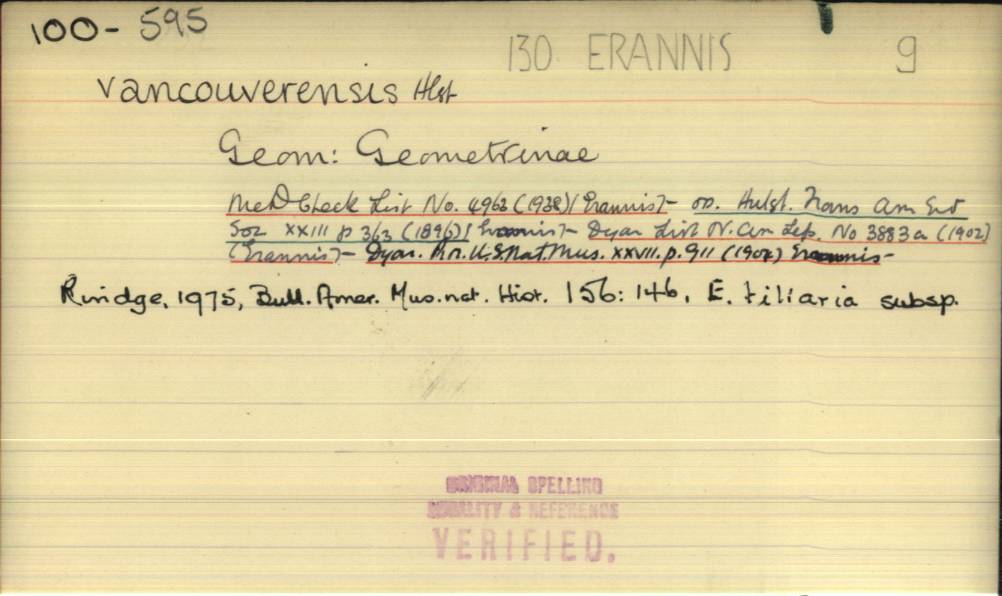 100- 595
130 ERANNIS 9
vancouverensis Hlst
Geom: Geometrinae
McD Check List No. 4963 (1938) [Erannis] - on. Hulst. Trans Am Ent
Soc XXIII p 363 (1896) [Erannis] - Dyar List N. Am Lep. No 3883a (1902)
[Erannis] - Dyar. Pr. U.S. Nat. Mus. XXVII. p. 911 (1904) Erannis -
Rindge, 1975, Bull. Amer. Mus. nat. Hist. 156: 146, E. tiliaria subsp.
ORIGINAL SPELLING
& REFERENCE
VERIFIED.